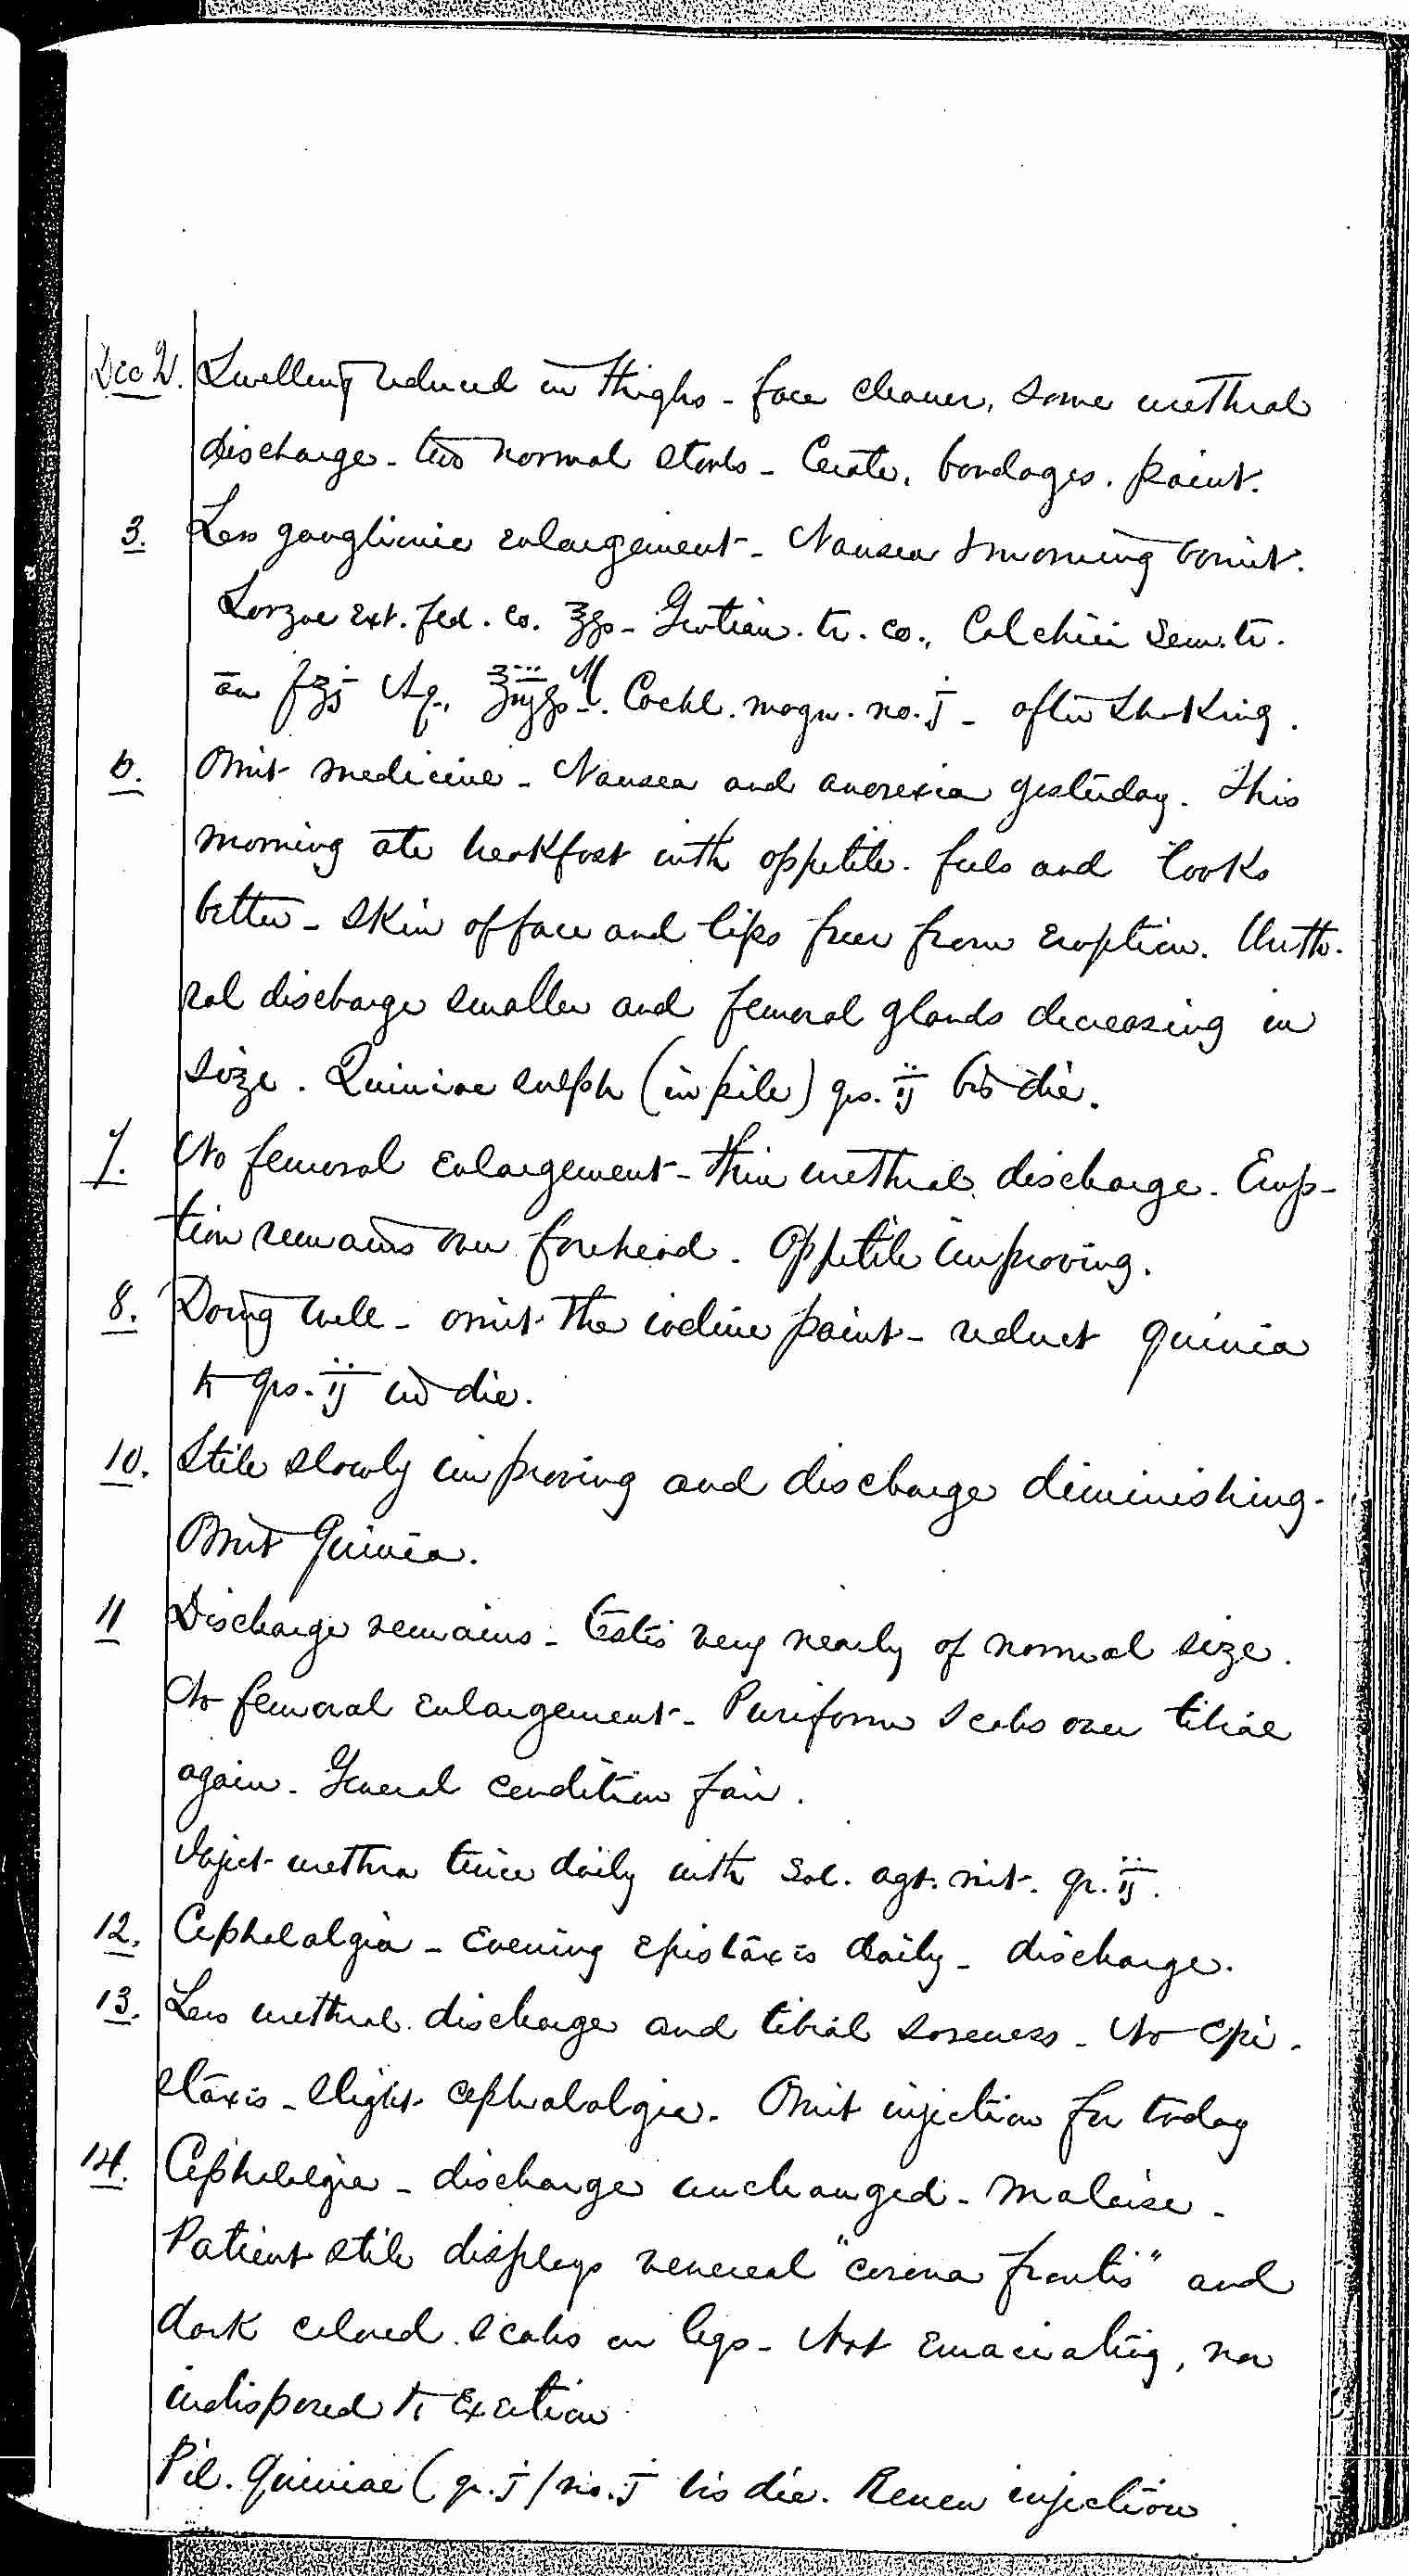 Dec 2. Swelling reduced in thighs - face cleaner, some urethral
discharge - two normal stools - Cerate, bandages. paint.
3. Less ganglionic enlargement - Nausea & morning vomit.
Ext. fld. co. ℥ss - Gentian. tr. co., Colchici Sem. tr.
āā f℥j Aq., ℥iijss M. Cochl. magn. no. j - after shaking.
6. Omit medicine - Nausea and anorexia yesterday. This
morning ate breakfast with appetite. feels and looks
better - Skin of face and lips freer from eruption. Ureth-
ral discharge smaller and femoral glands decreasing in
size. Quiniae sulph (in pill) grs. ij bis die.
7. No femoral enlargement - thin urethral discharge. Erup-
tion remains over forehead. Appetite improving.
8. Doing well - omit the iodine paint - reduct quinia
to grs. ij in die.
10. Still slowly improving and discharge diminishing.
Omit Quinia.
11 Discharge remains - testis very nearly of normal size.
No femoral enlargement - Puriform scabs over tibiae
again. General condition fair.
Inject urethra twice daily with Sol. agt. nit. gr. ij.
12. Cephalalgia - Evening epistaxis daily - discharge.
13. Less urethral discharge and tibial soreness - No epi-
staxis - slight cephalalgia. Omit injection for today
14. Cephalalgia - discharge unchanged - malaise -
Patient still displays venereal "corona frontis" and
dark colored scabs on legs - Not emaciating, nor
indisposed to exertion
Pil. Quiniae (gr. j) no. j bis die. Renew injection.